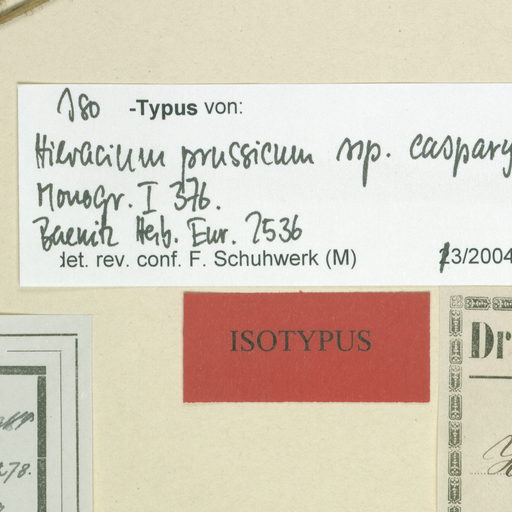 Iso -Typus von:
Hieracium prussicum ssp. caspary
Monogr. I 376.
Baenitz Herb. Eur. 2536
det. rev. conf. F. Schuhwerk (M) 3/2004
ISOTYPUS
Dr
78.